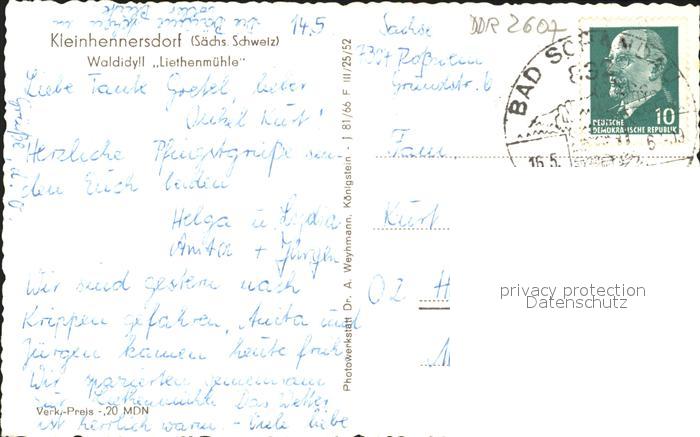 14.5
Kleinhennersdorf (Sächs. Schweiz)
Waldidyll „Liethenmühle"
Liebe Tante Gretel, lieber
Onkel Kurt!
Herzliche Pfingstgrüße sen-
den Euch beiden
Helga u. Lydia
Anita + Jürgen
Wir sind gestern nach
Krippen gefahren, Anita und
Jürgen kamen heute früh
Wir spazierten gemeinsam
zur Liethenmühle. Das Wetter
ist herrlich warm. - Viele liebe
Verk.-Preis -,20 MDN
Photowerkstätt Dr. A. Weyhmann, Königstein - J 81/66 F III/25/52
Sachse
Roßwein
Grundstr. 6
DDR 2607
BAD SCHANDAU
16.5.
10
DEUTSCHE
DEMOKRATISCHE REPUBLIK
Fam.
Kurt
privacy protection
Datenschutz